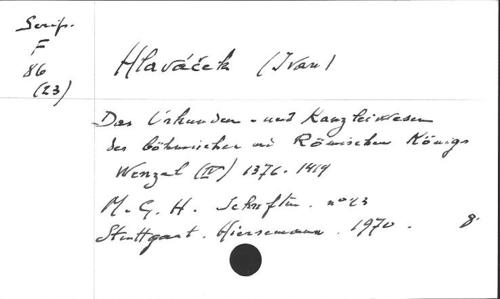 Scrip.
F
86
(23)
Hlaváček (Ivan)
Das Urkunden - und Kanzleiwesen
des böhmischen und Römischen Königs
Wenzel (IV) 1376-1419
M. G. H. Schriften. nº 23
Stuttgart. Hiersemann. 1970. 8.